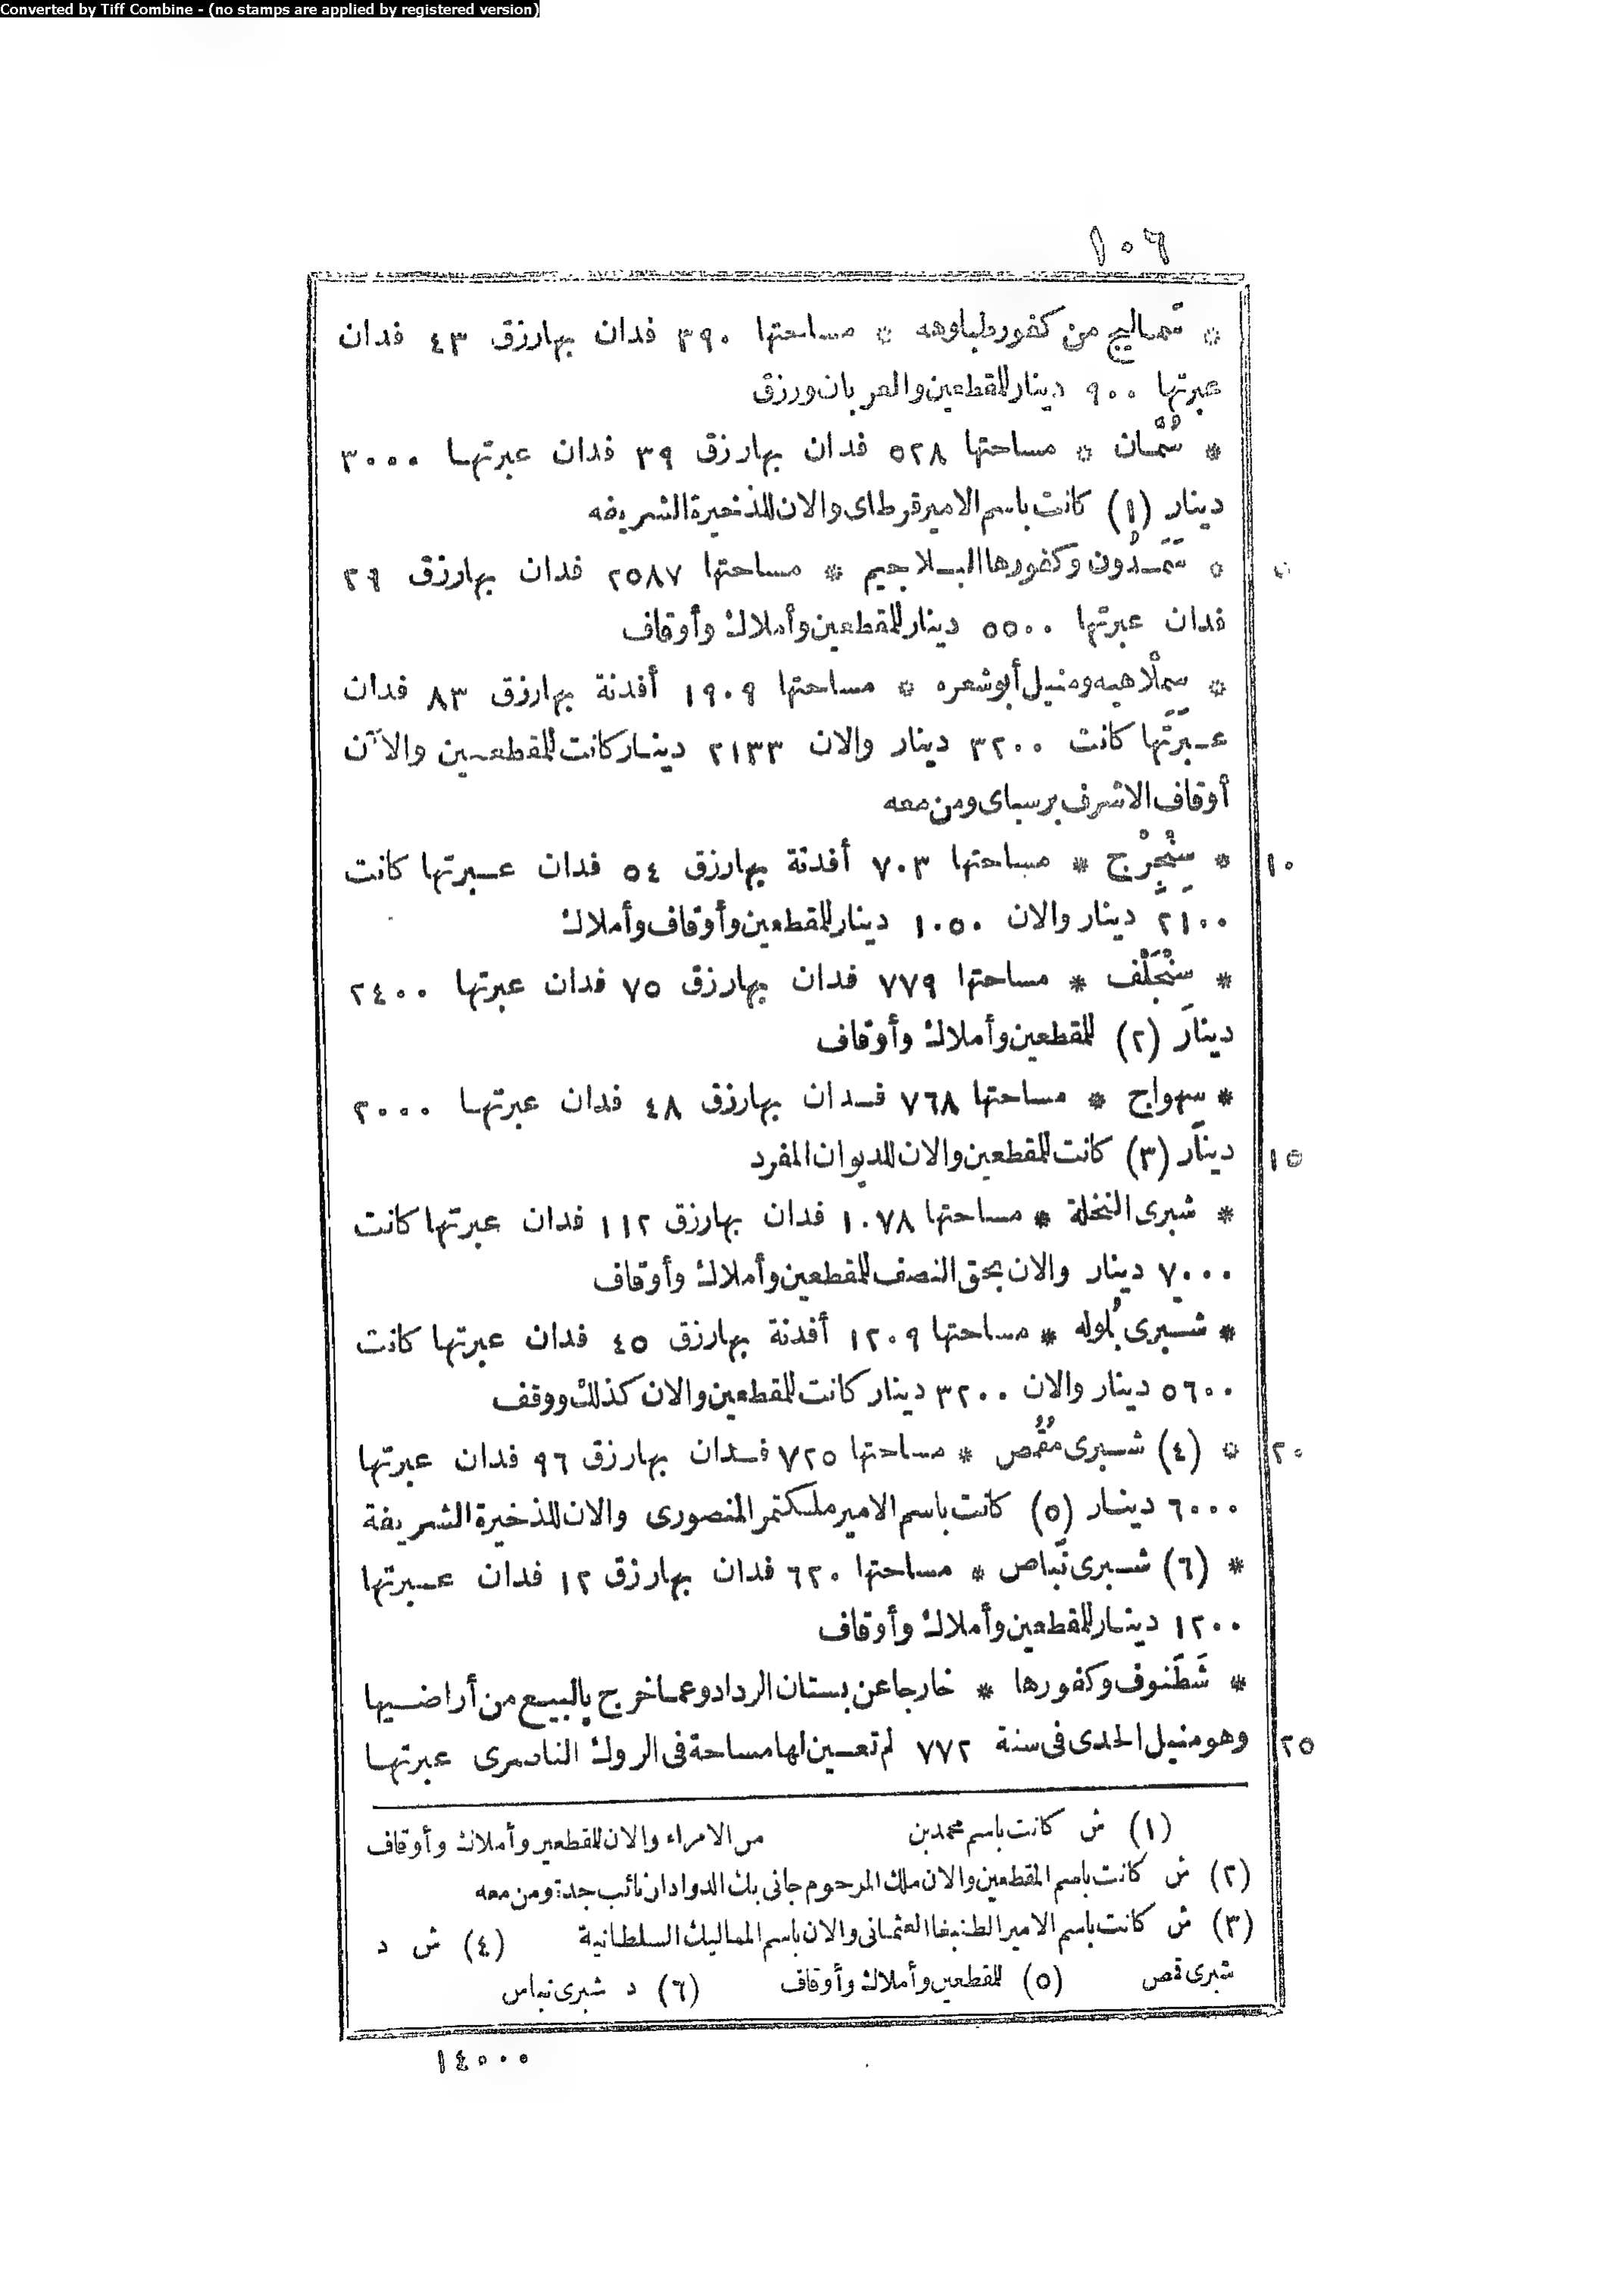 Converted by Tiff Combine - (no stamps are applied by registered version)
١٠٦
* تمساليج من كفور طباوهه * مساحتها ٣٩٠ فدان بها رزق ٤٣ فدان
عبرتها ٩٠٠ دينار للمقطعين والعربان ورزق
* سُمَّان * مساحتها ٥٢٨ فدان بها رزق ٣٩ فدان عبرتها ٣٠٠٠
دينار (١) كانت باسم الامير قرطاى والان للذخيرة الشريفه
٥ * سَمَدُون وكفورها البلاجيم * مساحتها ٢٥٨٧ فدان بها رزق ٢٩
فدان عبرتها ٥٥٠٠ دينار للمقطعين وأملاك وأوقاف
* سملْاهيه ومنيل أبو شعره * مساحتها ١٩٠٩ أفدنة بها رزق ٨٣ فدان
عبرَتَها كانت ٣٢٠٠ دينار والان ٢١٣٣ دينار كانت للمقطعين والآن
أوقاف الاشرف برسباى ومن معه
١٠ * سِنْجِرْج * مساحتها ٧٠٣ أفدنة بها رزق ٥٤ فدان عبرتها كانت
٢١٠٠ دينار والان ١٠٥٠ دينار للمقطعين وأوقاف وأملاك
* سِنْجَلْف * مساحتها ٧٧٩ فدان بها رزق ٧٥ فدان عبرتها ٢٤٠٠
دينار (٢) للمقطعين وأملاك وأوقاف
* سهواج * مساحتها ٧٦٨ فدان بها رزق ٤٨ فدان عبرتها ٢٠٠٠
١٥ دينار (٣) كانت للمقطعين والان للديوان المفرد
* شبرى النخلة * مساحتها ١٠٧٨ فدان بها رزق ١١٢ فدان عبرتها كانت
٧٠٠٠ دينار والان بحق النصف للمقطعين وأملاك وأوقاف
* شبرى بُلوله * مساحتها ١٢٠٩ أفدنة بها رزق ٤٥ فدان عبرتها كانت
٥٦٠٠ دينار والان ٣٢٠٠ دينار كانت للمقطعين والان كذلك ووقف
٢٠ * (٤) شبرى مُقُمص * مساحتها ٧٢٥ فدان بها رزق ٩٦ فدان عبرتها
٦٠٠٠ دينار (٥) كانت باسم الامير ملكتمر المنصورى والان للذخيرة الشريفة
* (٦) شبرى نَباص * مساحتها ٦٢٠ فدان بها رزق ١٢ فدان عبرتها
١٢٠٠ دينار للمقطعين وأملاك وأوقاف
* شَطَنوف وكفورها * خارجا عن بستان الرداد وعما خرج بالبيع من أراضيها
٢٥ وهو منيل الحدى فى سنة ٧٧٢ لم تعين لها مساحة فى الروك الناصرى عبرتها
(١) ش كانت باسم محمد بن من الامراء والان للمقطعين وأملاك وأوقاف
(٢) ش كانت باسم المقطعين والان ملك المرحوم جانى بك الدوادار نائب جدة ومن معه
(٣) ش كانت باسم الامير الطنبغا العثمانى والان باسم المماليك السلطانية (٤) ش د
شبرى قمص (٥) للمقطعين وأملاك وأوقاف (٦) د شبرى نباس
١٤٠٠٠